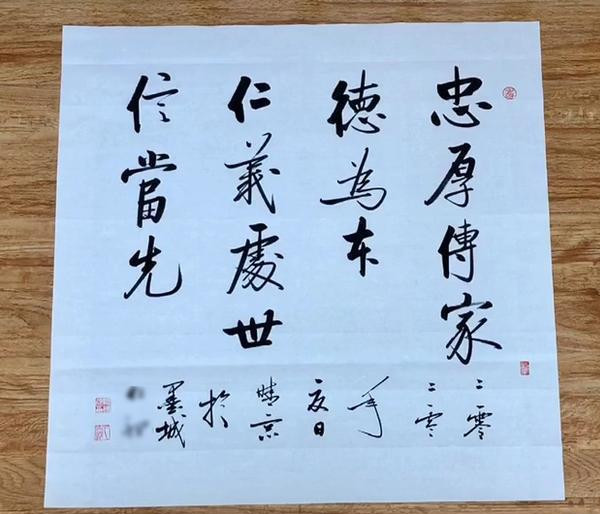 忠厚傳家
德為本
仁義處世
信當先
二零
二零
年
夏日
楚京
於
墨城